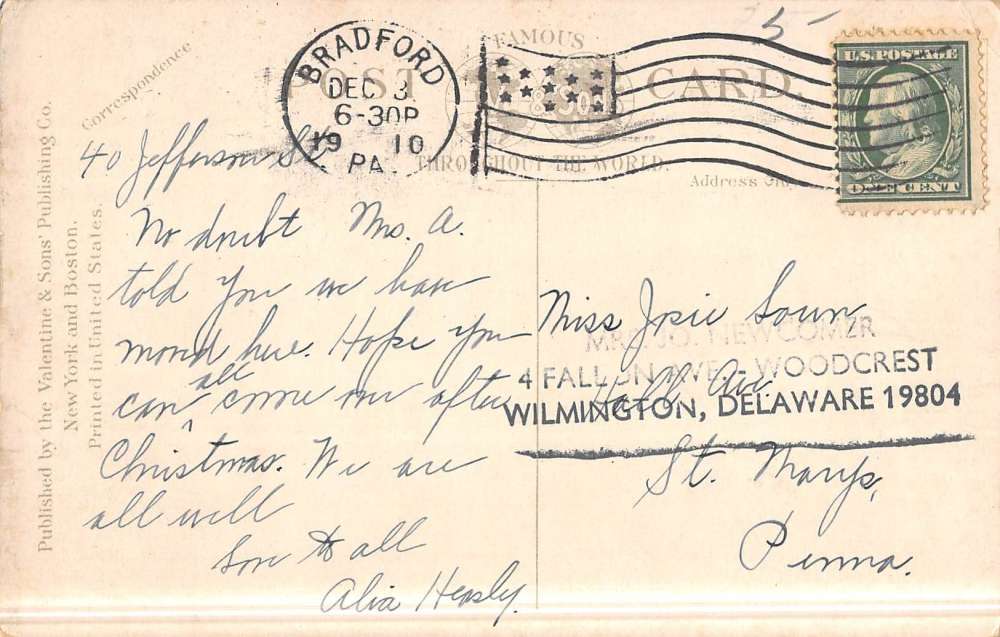 Published by the Valentine & Sons' Publishing Co.
New York and Boston.
Printed in United States.
Correspondence
FAMOUS
POST CARD.
THROUGHOUT THE WORLD.
Address Only
BRADFORD
DEC 3
6-30P
1910
PA.
5
U.S. POSTAGE
ONE CENT
40 Jefferson St.
No doubt Mrs. A.
told you we have
moved here. Hope you
can all come over after
Christmas. We are
all well
Love to all
Henly.
Miss Josie
Ave.
St. Marys,
Penna.
MRS. JO. NEWCOMER
4 FALLON AVE. - WOODCREST
WILMINGTON, DELAWARE 19804